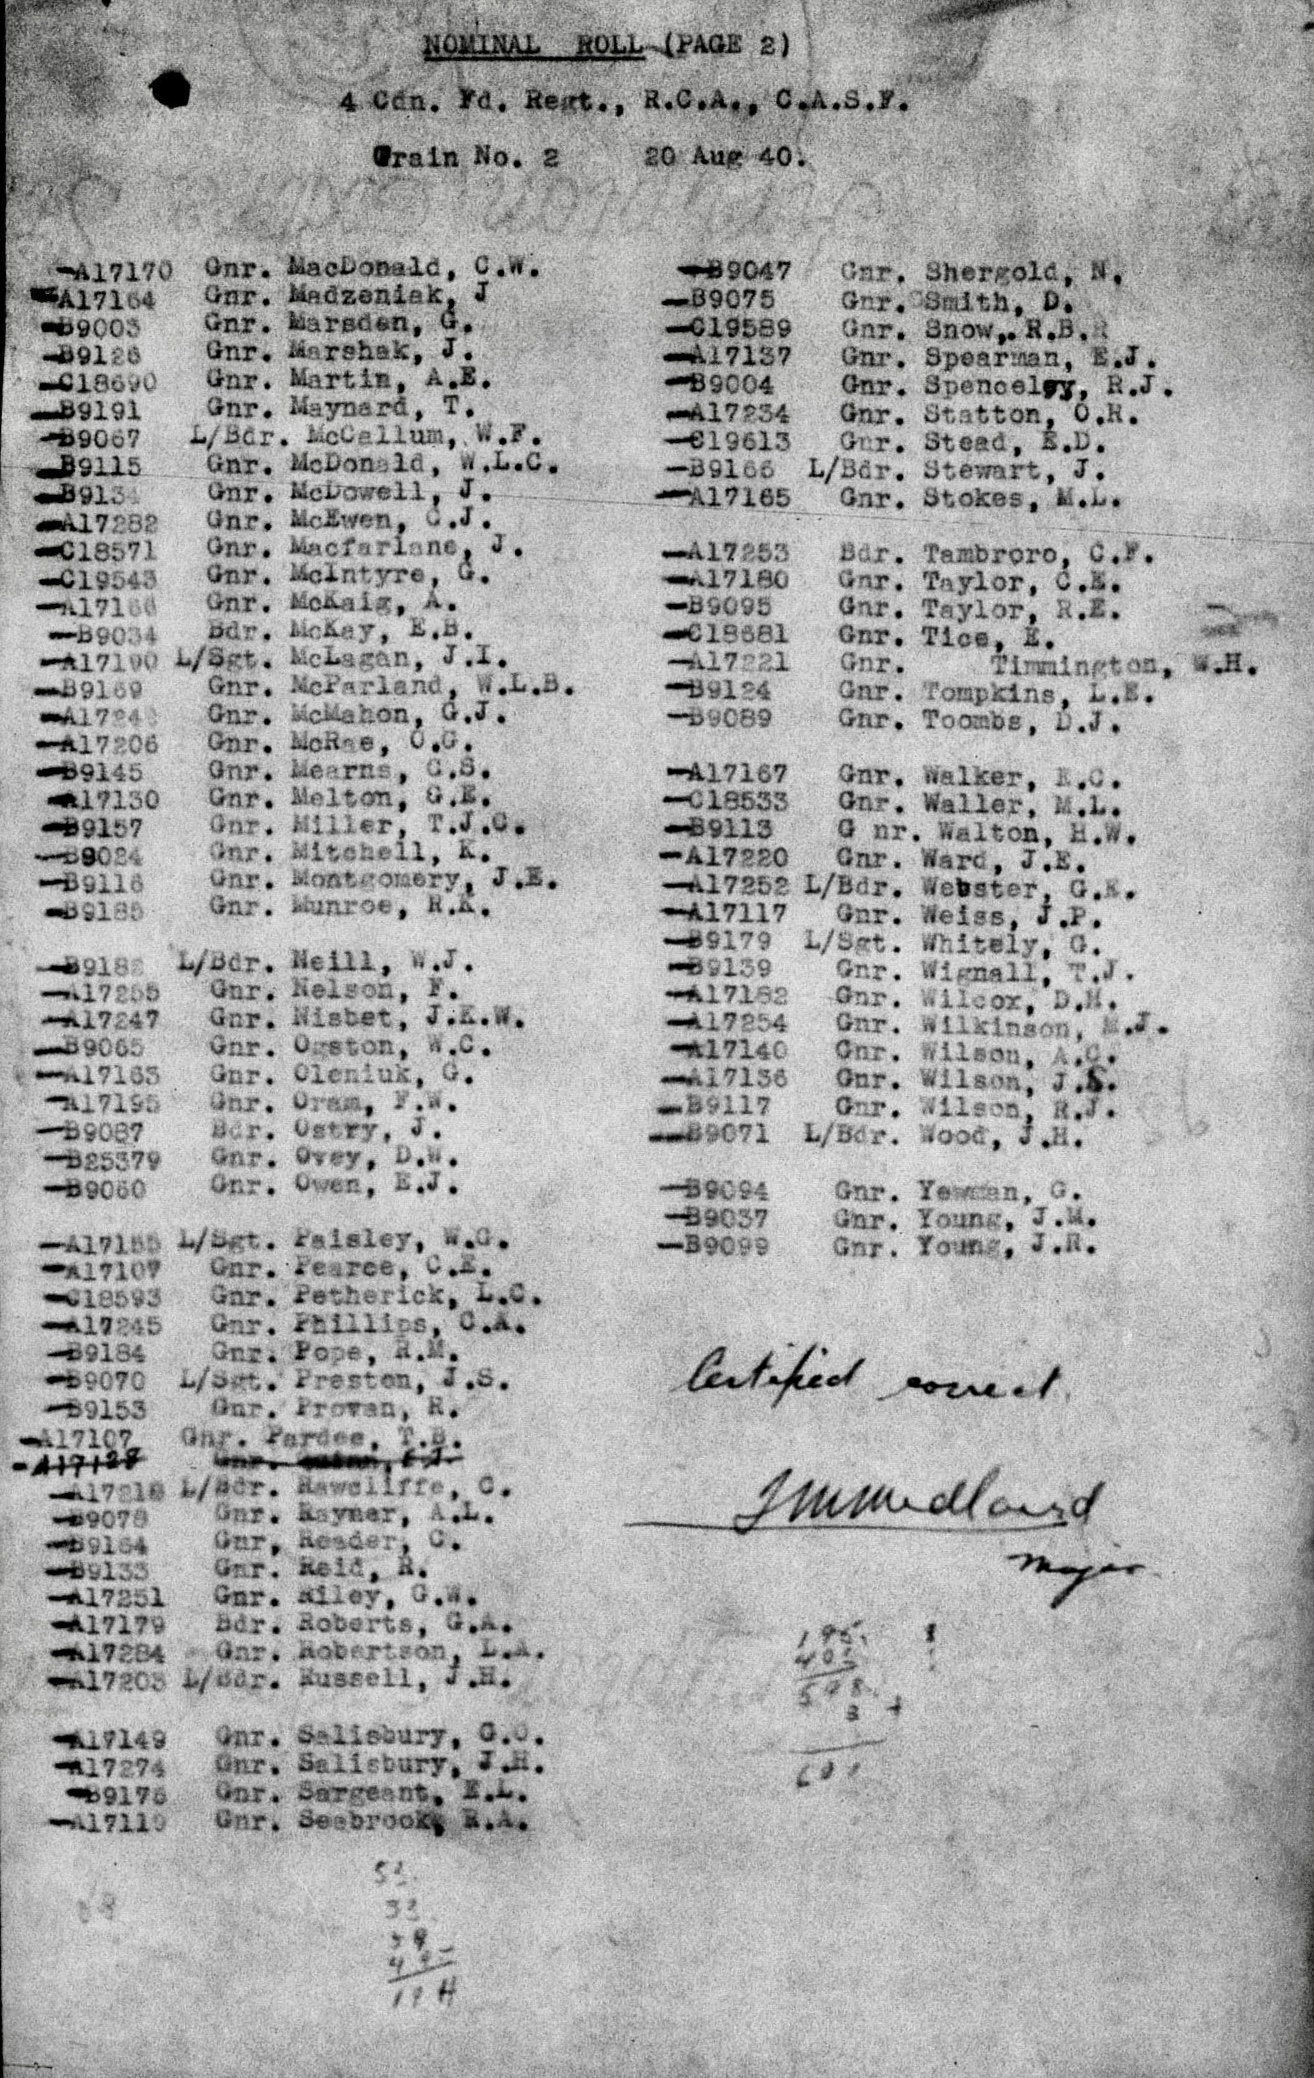 NOMINAL ROLL (PAGE 2)
4 Cdn. Fd. Regt., R.C.A., C.A.S.F.
Train No. 2 20 Aug 40.
A17170 Gnr. MacDonald, C.W.
A17164 Gnr. Madzeniak, J
B9003 Gnr. Marsden, G.
B9126 Gnr. Marshak, J.
C18690 Gnr. Martin, A.E.
B9191 Gnr. Maynard, T.
B9067 L/Bdr. McCallum, W.F.
B9115 Gnr. McDonald, W.L.C.
Gnr. McDowell, J.
A17282 Gnr. McEwen, C.J.
C18571 Gnr. Macfarlane, J.
C19543 Gnr. McIntyre, G.
Gnr. McKaig, A.
B9034 Bdr. McKay, E.B.
A17190 L/Sgt. McLagan, J.I.
B9169 Gnr. McParland, W.L.B.
Gnr. McMahon, G.J.
A17206 Gnr. McRae, O.G.
B9145 Gnr. Mearns, C.S.
A17130 Gnr. Melton, G.E.
B9157 Gnr. Miller, T.J.C.
B9024 Gnr. Mitchell, K.
B9116 Gnr. Montgomery, J.E.
B9185 Gnr. Munroe, R.K.
L/Bdr. Neill, W.J.
A17255 Gnr. Nelson, F.
A17247 Gnr. Nisbet, J.K.W.
B9065 Gnr. Ogston, W.C.
A17163 Gnr. Oleniuk, G.
A17195 Gnr. Oram, F.W.
B9087 Bdr. Ostry, J.
B25379 Gnr. Ovey, D.W.
B9060 Gnr. Owen, E.J.
A17155 L/Sgt. Paisley, W.G.
A17107 Gnr. Pearce, C.E.
C18593 Gnr. Petherick, L.C.
A17245 Gnr. Phillips, C.A.
B9184 Gnr. Pope, R.M.
B9070 L/Sgt. Preston, J.S.
B9153 Gnr. Provan, R.
A17107 Gnr. Pardee, T.B.
Gnr.
A17218 L/Bdr. Rawcliffe, C.
B9078 Gnr. Rayner, A.L.
B9164 Gnr, Reader, C.
B9133 Gnr. Reid, R.
A17251 Gnr. Riley, G.W.
A17179 Bdr. Roberts, G.A.
A17284 Gnr. Robertson, L.A.
A17203 L/Bdr. Russell, J.H.
A17149 Gnr. Salisbury, G.O.
A17274 Gnr. Salisbury, J.H.
B9176 Gnr. Sargeant, E.L.
A17119 Gnr. Seabrook, R.A.
53
33
39
49
174
B9047 Gnr. Shergold, N.
B9075 Gnr. Smith, D.
C19589 Gnr. Snow,. R.B.R
A17137 Gnr. Spearman, E.J.
B9004 Gnr. Spenceley, R.J.
A17234 Gnr. Statton, O.R.
C19613 Gnr. Stead, E.D.
B9166 L/Bdr. Stewart, J.
A17165 Gnr. Stokes, M.L.
A17253 Bdr. Tambroro, C.F.
A17180 Gnr. Taylor, C.E.
B9095 Gnr. Taylor, R.E.
C18681 Gnr. Tice, E.
A17221 Gnr. Timmington, W.H.
B9124 Gnr. Tompkins, L.E.
B9089 Gnr. Toombs, D.J.
A17167 Gnr. Walker, E.C.
C18533 Gnr. Waller, M.L.
B9113 G nr. Walton, H.W.
A17220 Gnr. Ward, J.E.
A17252 L/Bdr. Webster, G.E.
A17117 Gnr. Weiss, J.P.
B9179 L/Sgt. Whitely, G.
B9139 Gnr. Wignall, T.J.
A17182 Gnr. Wilcox, D.H.
A17254 Gnr. Wilkinson, M.J.
A17140 Gnr. Wilson, A.C.
A17136 Gnr. Wilson, J.S.
B9117 Gnr. Wilson, R.J.
B9071 L/Bdr. Wood, J.H.
B9094 Gnr. Yewman, G.
B9037 Gnr. Young, J.M.
B9099 Gnr. Young, J.R.
Certified correct.
Major